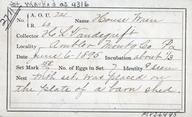 St. Marks d as 4316
A.O.U. 721 Name House Wren
Collector H. L. Vandegrift
Locality Ambler Montg Co Pa
Date June 6-1895 Incubation about 1/3
Set Mark No. of Eggs in Set 7 Identity Seen
Nest with set, was placed on
the plate of a barn shed.